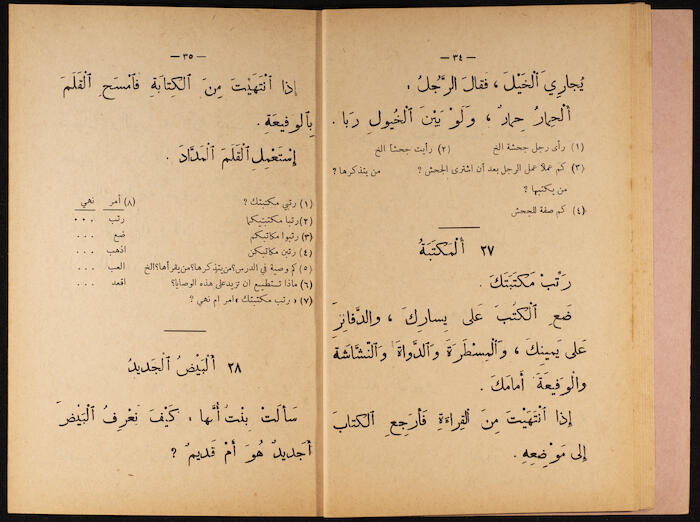 — ٣٤ —
يُجارِي ٱلْخَيْلَ ، فَقالَ الرَّجُلُ :
أَلْحِمارُ حِمارٌ ، وَلَوْ بَيْنَ الْخُيولِ رَبا .
(١) رأى رجل جحشة الخ (٢) رأيت جحشاً الخ
(٣) كم عملاً عمل الرجل بعد أن اشترى الجحش ؟ من يتذكرها ؟
من يكتبها ؟
(٤) كم صفة للجحش
٢٧ أَلْمَكْتَبَةُ
رَتِّبْ مَكْتَبَتَكَ .
ضَعِ ٱلْكُتُبَ عَلى يَسارِكَ ، والدَّفاتِرَ
عَلى يَمينِكَ ، وَٱلْمِسْطَرَةَ وَالدَّواةَ وَالنَّشَّاشَةَ
وَالْوَفيعَةَ أَمامَكَ .
إِذا ٱنْتَهَيْتَ مِنَ ٱلْقِراءَةِ فَأَرجِعِ ٱلْكتابَ
إِلى مَوْضِعِهِ .
— ٣٥ —
إِذا ٱنْتَهَيْتَ مِنَ ٱلْكِتابَةِ فَٱمْسَحِ ٱلْقَلَمَ
بِٱلْوَفيعَةِ .
إِسْتَعْمِلِ ٱلْقَلَمَ ٱلْمَدَّادَ .
(١) رتبي مكتبتك ؟ (٨) أمر نهي
(٢) رتبا مكتبتيكما رتب ...
(٣) رتبوا مكاتبكم ضع ...
(٤) رتبن مكاتبكن اذهب ...
(٥) كم وصية في الدرس؟ من يتذكرها؟ من يقرأها؟ الخ العب ...
(٦) ماذا تستطيع ان تزيد على هذه الوصايا؟ اقعد ...
(٧) « رتب مكتبتك » امر ام نهي ؟
٢٨ أَلْبَيْضُ ٱلْجَديدُ
سَأَلَتْ بِنْتٌ أُمَّها ، كَيْفَ نَعْرِفُ ٱلْبَيْضَ
أَجَديدٌ هُوَ أَمْ قَديمٌ ؟